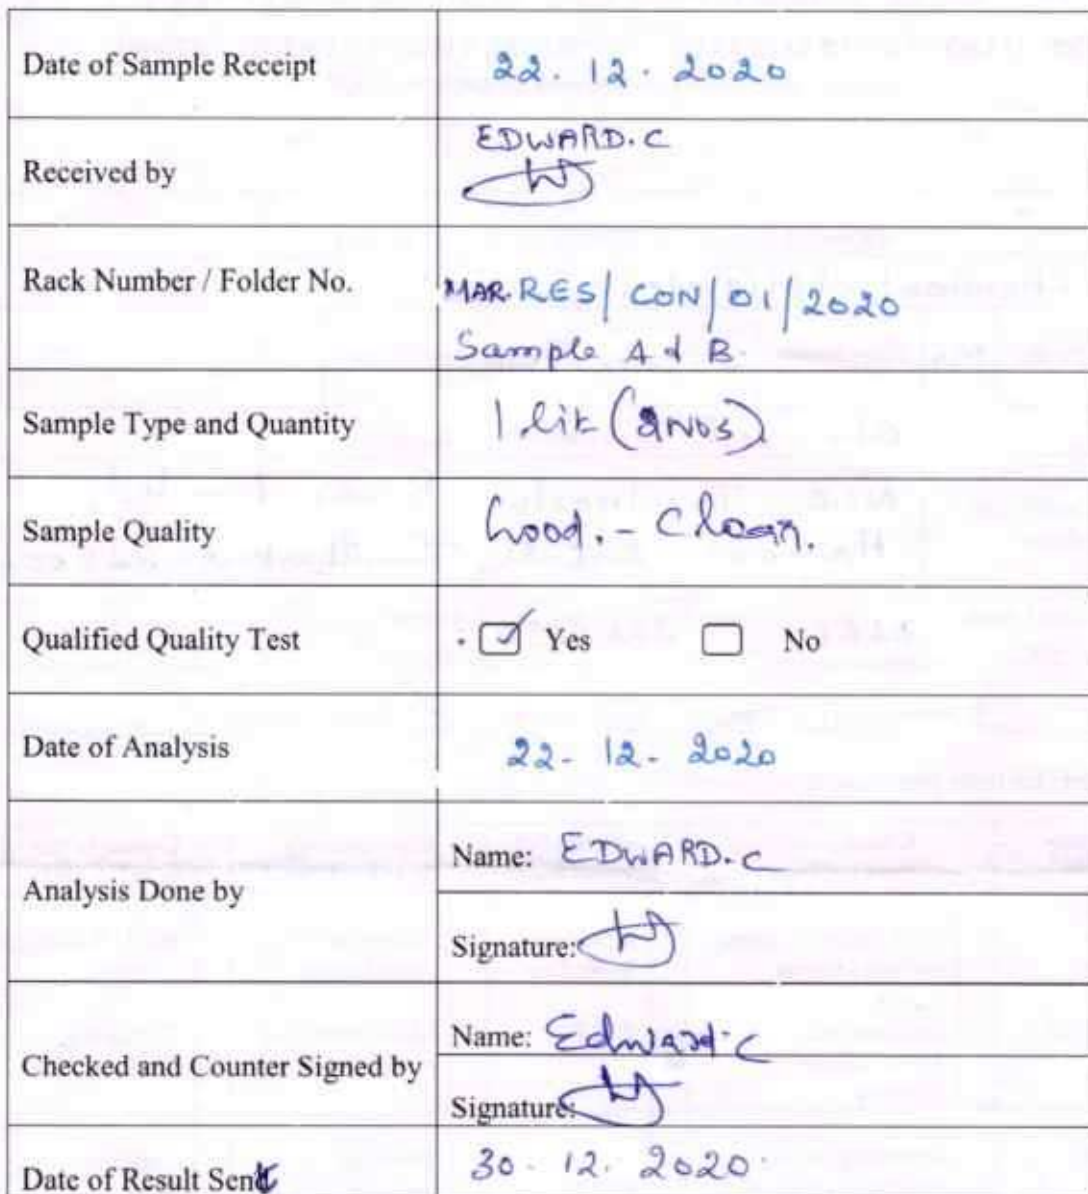 Date of Sample Receipt 22. 12. 2020
EDWARD. C
Received by
Rack Number / Folder No. MAR.RES/ CON/01/2020
Sample A & B.
Sample Type and Quantity 1 lit (2Nos)
Sample Quality Good. - Clean.
Qualified Quality Test Yes No
Date of Analysis 22- 12- 2020
Name: EDWARD. C
Analysis Done by
Signature:
Name: Edward. C
Checked and Counter Signed by
Signature:
Date of Result Sent 30. 12. 2020.